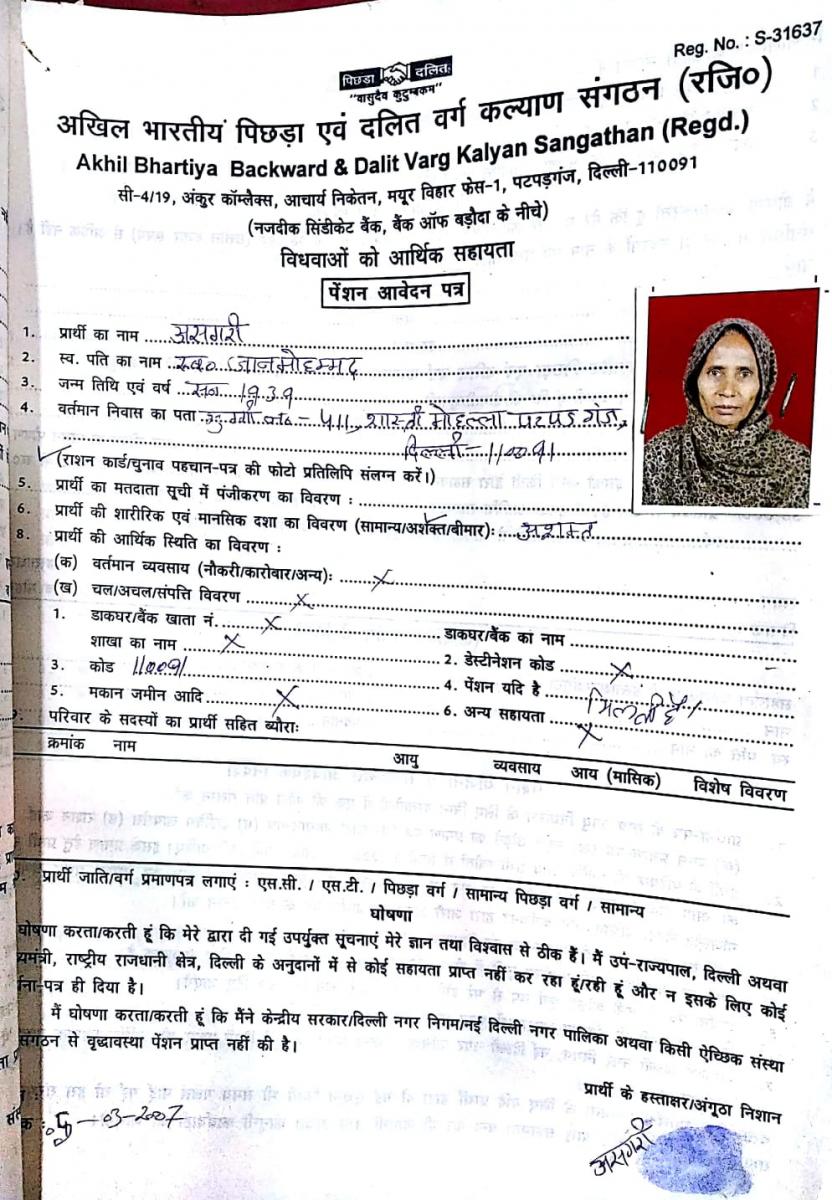 Reg. No. : S-31637
पिछड़ा दलित
"वासुदेव कुटुम्बकम"
अखिल भारतीय पिछड़ा एवं दलित वर्ग कल्याण संगठन (रजि०)
Akhil Bhartiya Backward & Dalit Varg Kalyan Sangathan (Regd.)
सी-4/19, अंकुर कॉम्लैक्स, आचार्य निकेतन, मयूर विहार फेस-1, पटपड़गंज, दिल्ली-110091
(नजदीक सिंडीकेट बैंक, बैंक ऑफ बड़ौदा के नीचे)
विधवाओं को आर्थिक सहायता
पेंशन आवेदन पत्र
1. प्रार्थी का नाम असगरी
2. स्व. पति का नाम स्व० जानमोहम्मद
3. जन्म तिथि एवं वर्ष सन 1939
4. वर्तमान निवास का पता झुग्गी नं०- 511, शास्त्री मोहल्ला पटपड़गंज,
दिल्ली-110091
(राशन कार्ड/चुनाव पहचान-पत्र की फोटो प्रतिलिपि संलग्न करें।)
5. प्रार्थी का मतदाता सूची में पंजीकरण का विवरण :
6. प्रार्थी की शारीरिक एवं मानसिक दशा का विवरण (सामान्य/अशक्त/बीमार): अशक्त
8. प्रार्थी की आर्थिक स्थिति का विवरण :
(क) वर्तमान व्यवसाय (नौकरी/कारोबार/अन्य): x
(ख) चल/अचल/संपत्ति विवरण x
1. डाकघर/बैंक खाता नं. x डाकघर/बैंक का नाम
शाखा का नाम x 2. डेस्टीनेशन कोड x
3. कोड 110091 4. पेंशन यदि है मिलती है।
5. मकान जमीन आदि x 6. अन्य सहायता x
परिवार के सदस्यों का प्रार्थी सहित ब्यौराः
क्रमांक नाम आयु व्यवसाय आय (मासिक) विशेष विवरण
प्रार्थी जाति/वर्ग प्रमाणपत्र लगाएं : एस.सी. / एस.टी. / पिछड़ा वर्ग / सामान्य पिछड़ा वर्ग / सामान्य
घोषणा
घोषणा करता/करती हूं कि मेरे द्वारा दी गई उपर्युक्त सूचनाएं मेरे ज्ञान तथा विश्वास से ठीक हैं। मैं उप-राज्यपाल, दिल्ली अथवा
यमंत्री, राष्ट्रीय राजधानी क्षेत्र, दिल्ली के अनुदानों में से कोई सहायता प्राप्त नहीं कर रहा हूं/रही हूं और न इसके लिए कोई
र्ना-पत्र ही दिया है।
मैं घोषणा करता/करती हूं कि मैंने केन्द्रीय सरकार/दिल्ली नगर निगम/नई दिल्ली नगर पालिका अथवा किसी ऐच्छिक संस्था
संगठन से वृध्दावस्था पेंशन प्राप्त नहीं की है।
प्रार्थी के हस्ताक्षर/अंगूठा निशान
-03-2007
असगरी